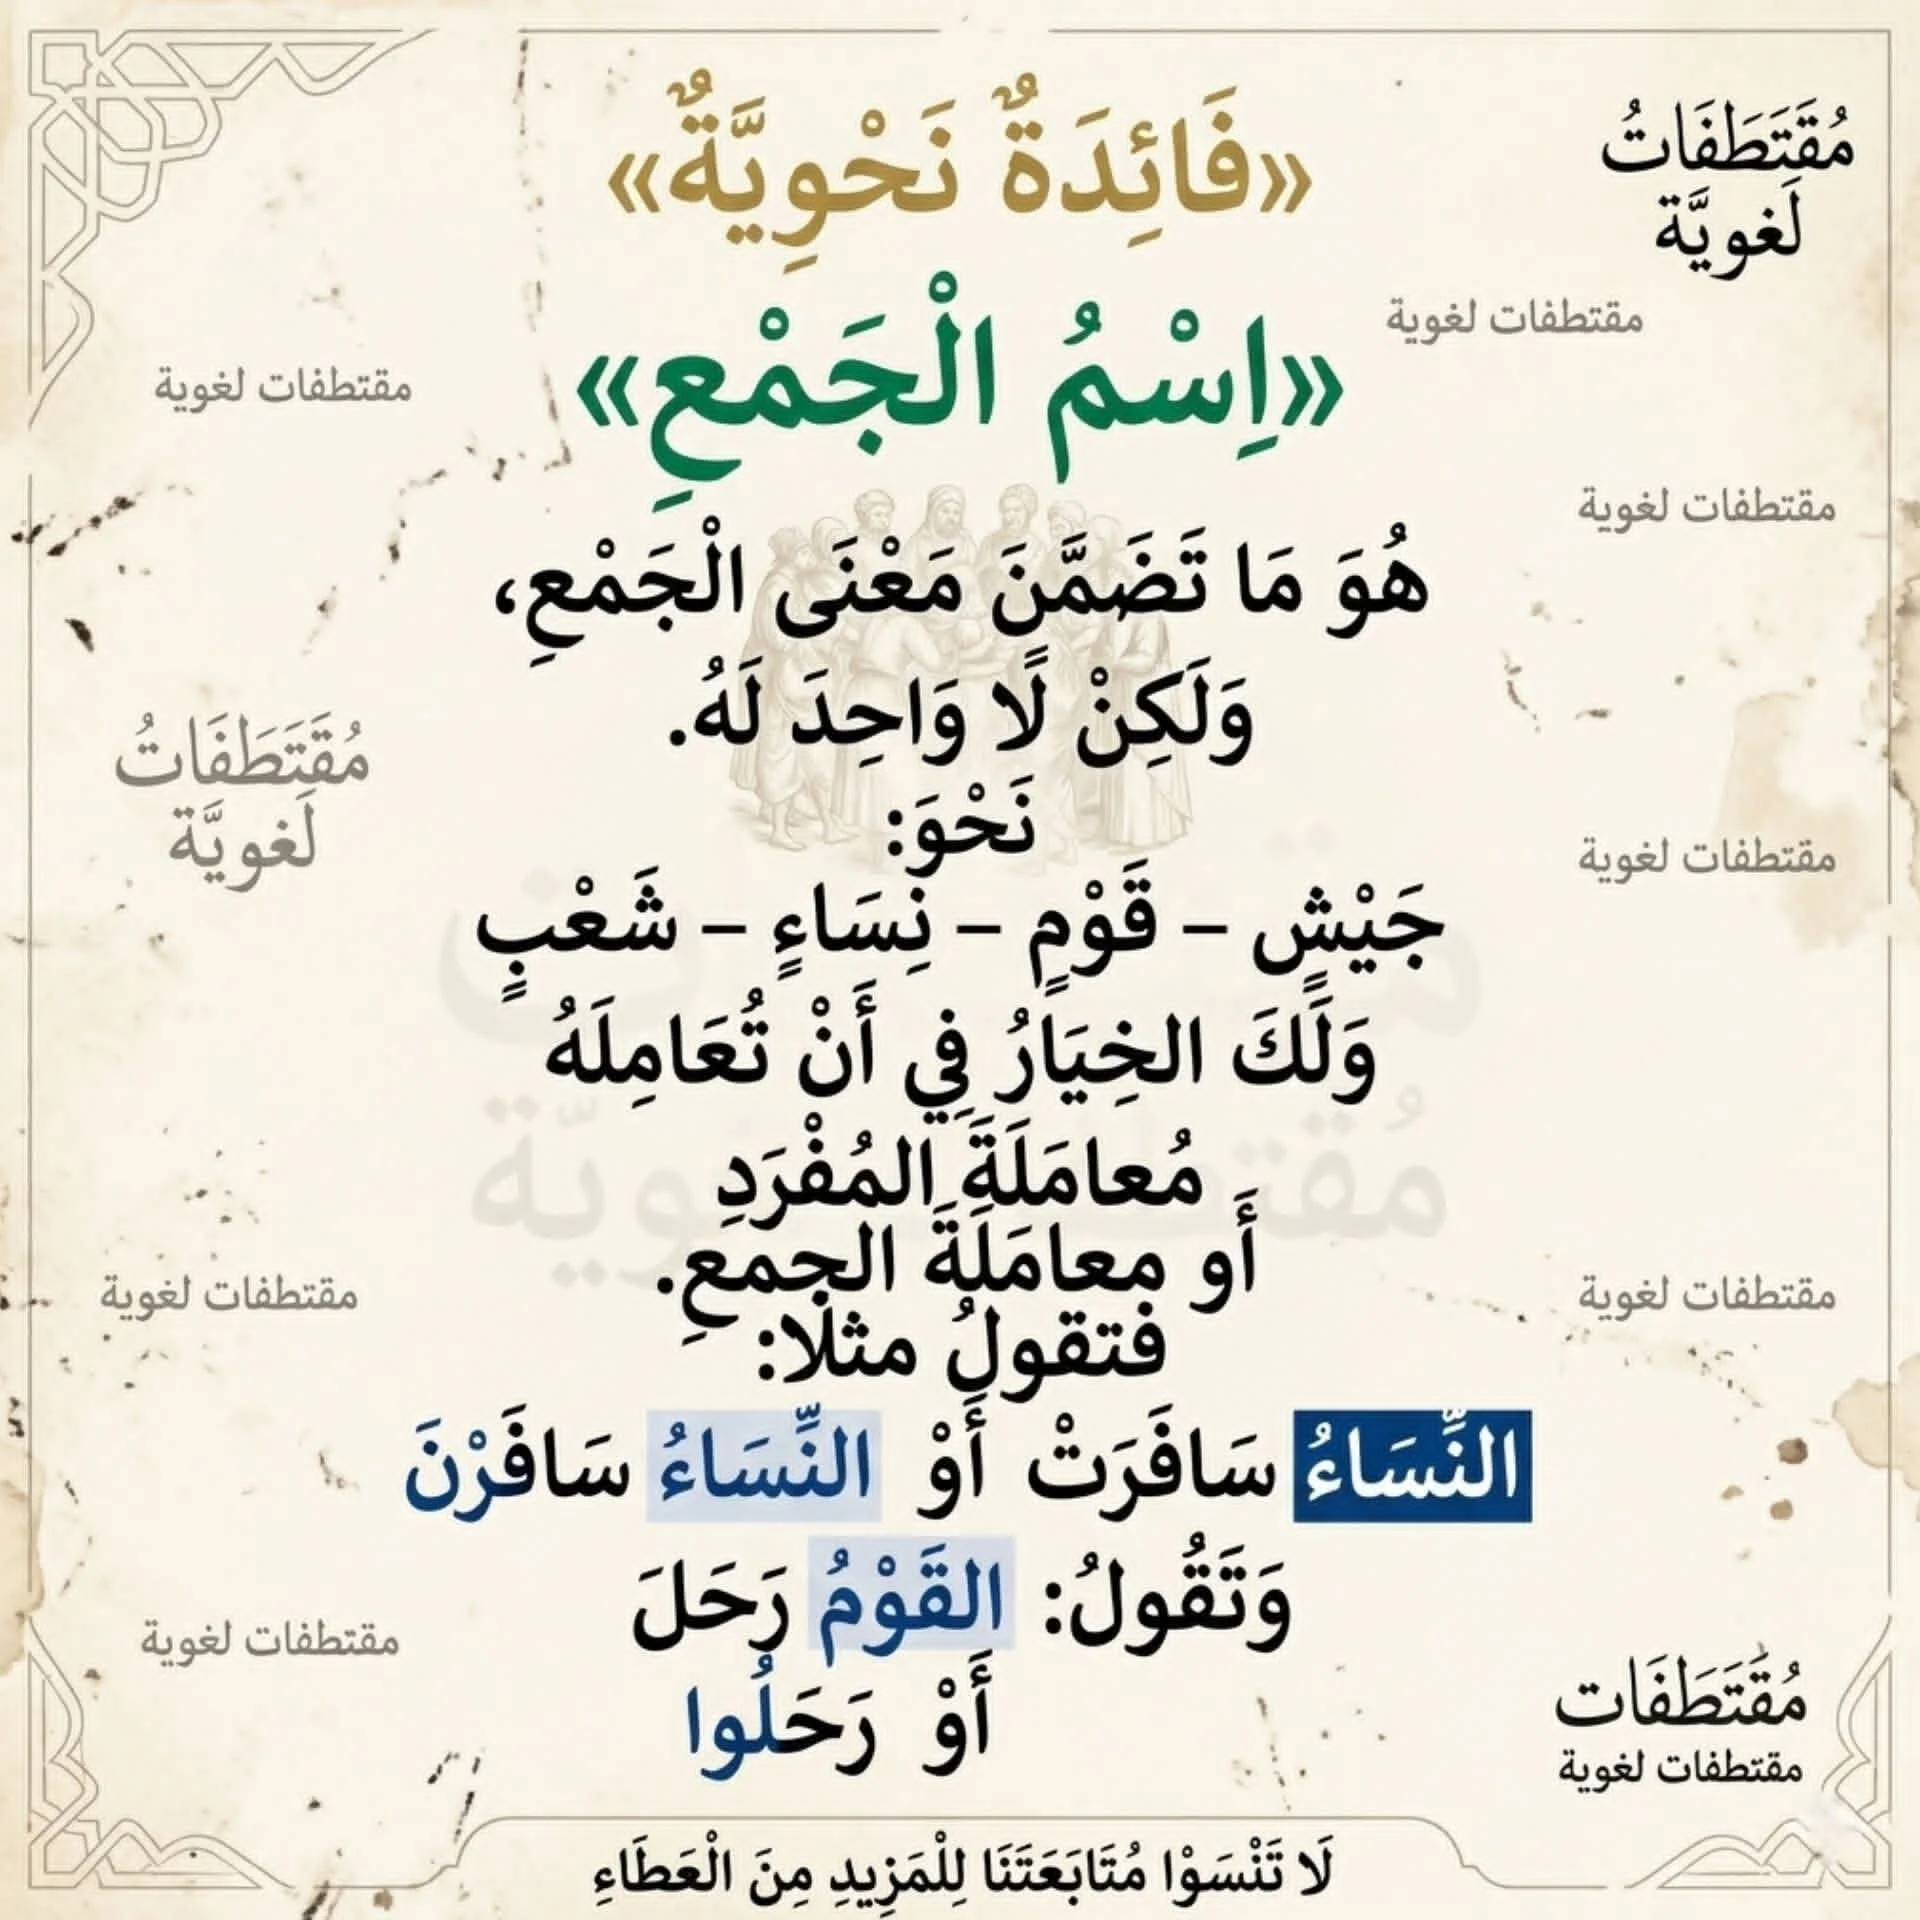 «فَائِدَةٌ نَحْوِيَّةٌ»
مُقْتَطَفَاتُ
لَغويَّة
«اِسْمُ الْجَمْعِ»
مقتطفات لغوية
مقتطفات لغوية
مقتطفات لغوية
هُوَ مَا تَضَمَّنَ مَعْنَى الْجَمْعِ،
وَلَكِنْ لَا وَاحِدَ لَهُ.
مُقْتَطَفَاتُ
لَغويَّة
نَحْوَ:
مقتطفات لغوية
جَيْشٍ – قَوْمٍ – نِسَاءٍ – شَعْبٍ
وَلَكَ الخِيَارُ فِي أَنْ تُعَامِلَهُ
مُعامَلَةَ المُفْرَدِ
أَو معامَلَةَ الجمعِ.
مقتطفات لغوية
مقتطفات لغوية
فتقولُ مثلًا:
النِّسَاءُ سَافَرَتْ أَوْ النِّسَاءُ سَافَرْنَ
وَتَقُولُ: القَوْمُ رَحَلَ
مقتطفات لغوية
أَوْ رَحَلُوا
مُقْتَطَفَات
مقتطفات لغوية
لَا تَنْسَوْا مُتَابَعَتَنَا لِلْمَزِيدِ مِنَ الْعَطَاءِ